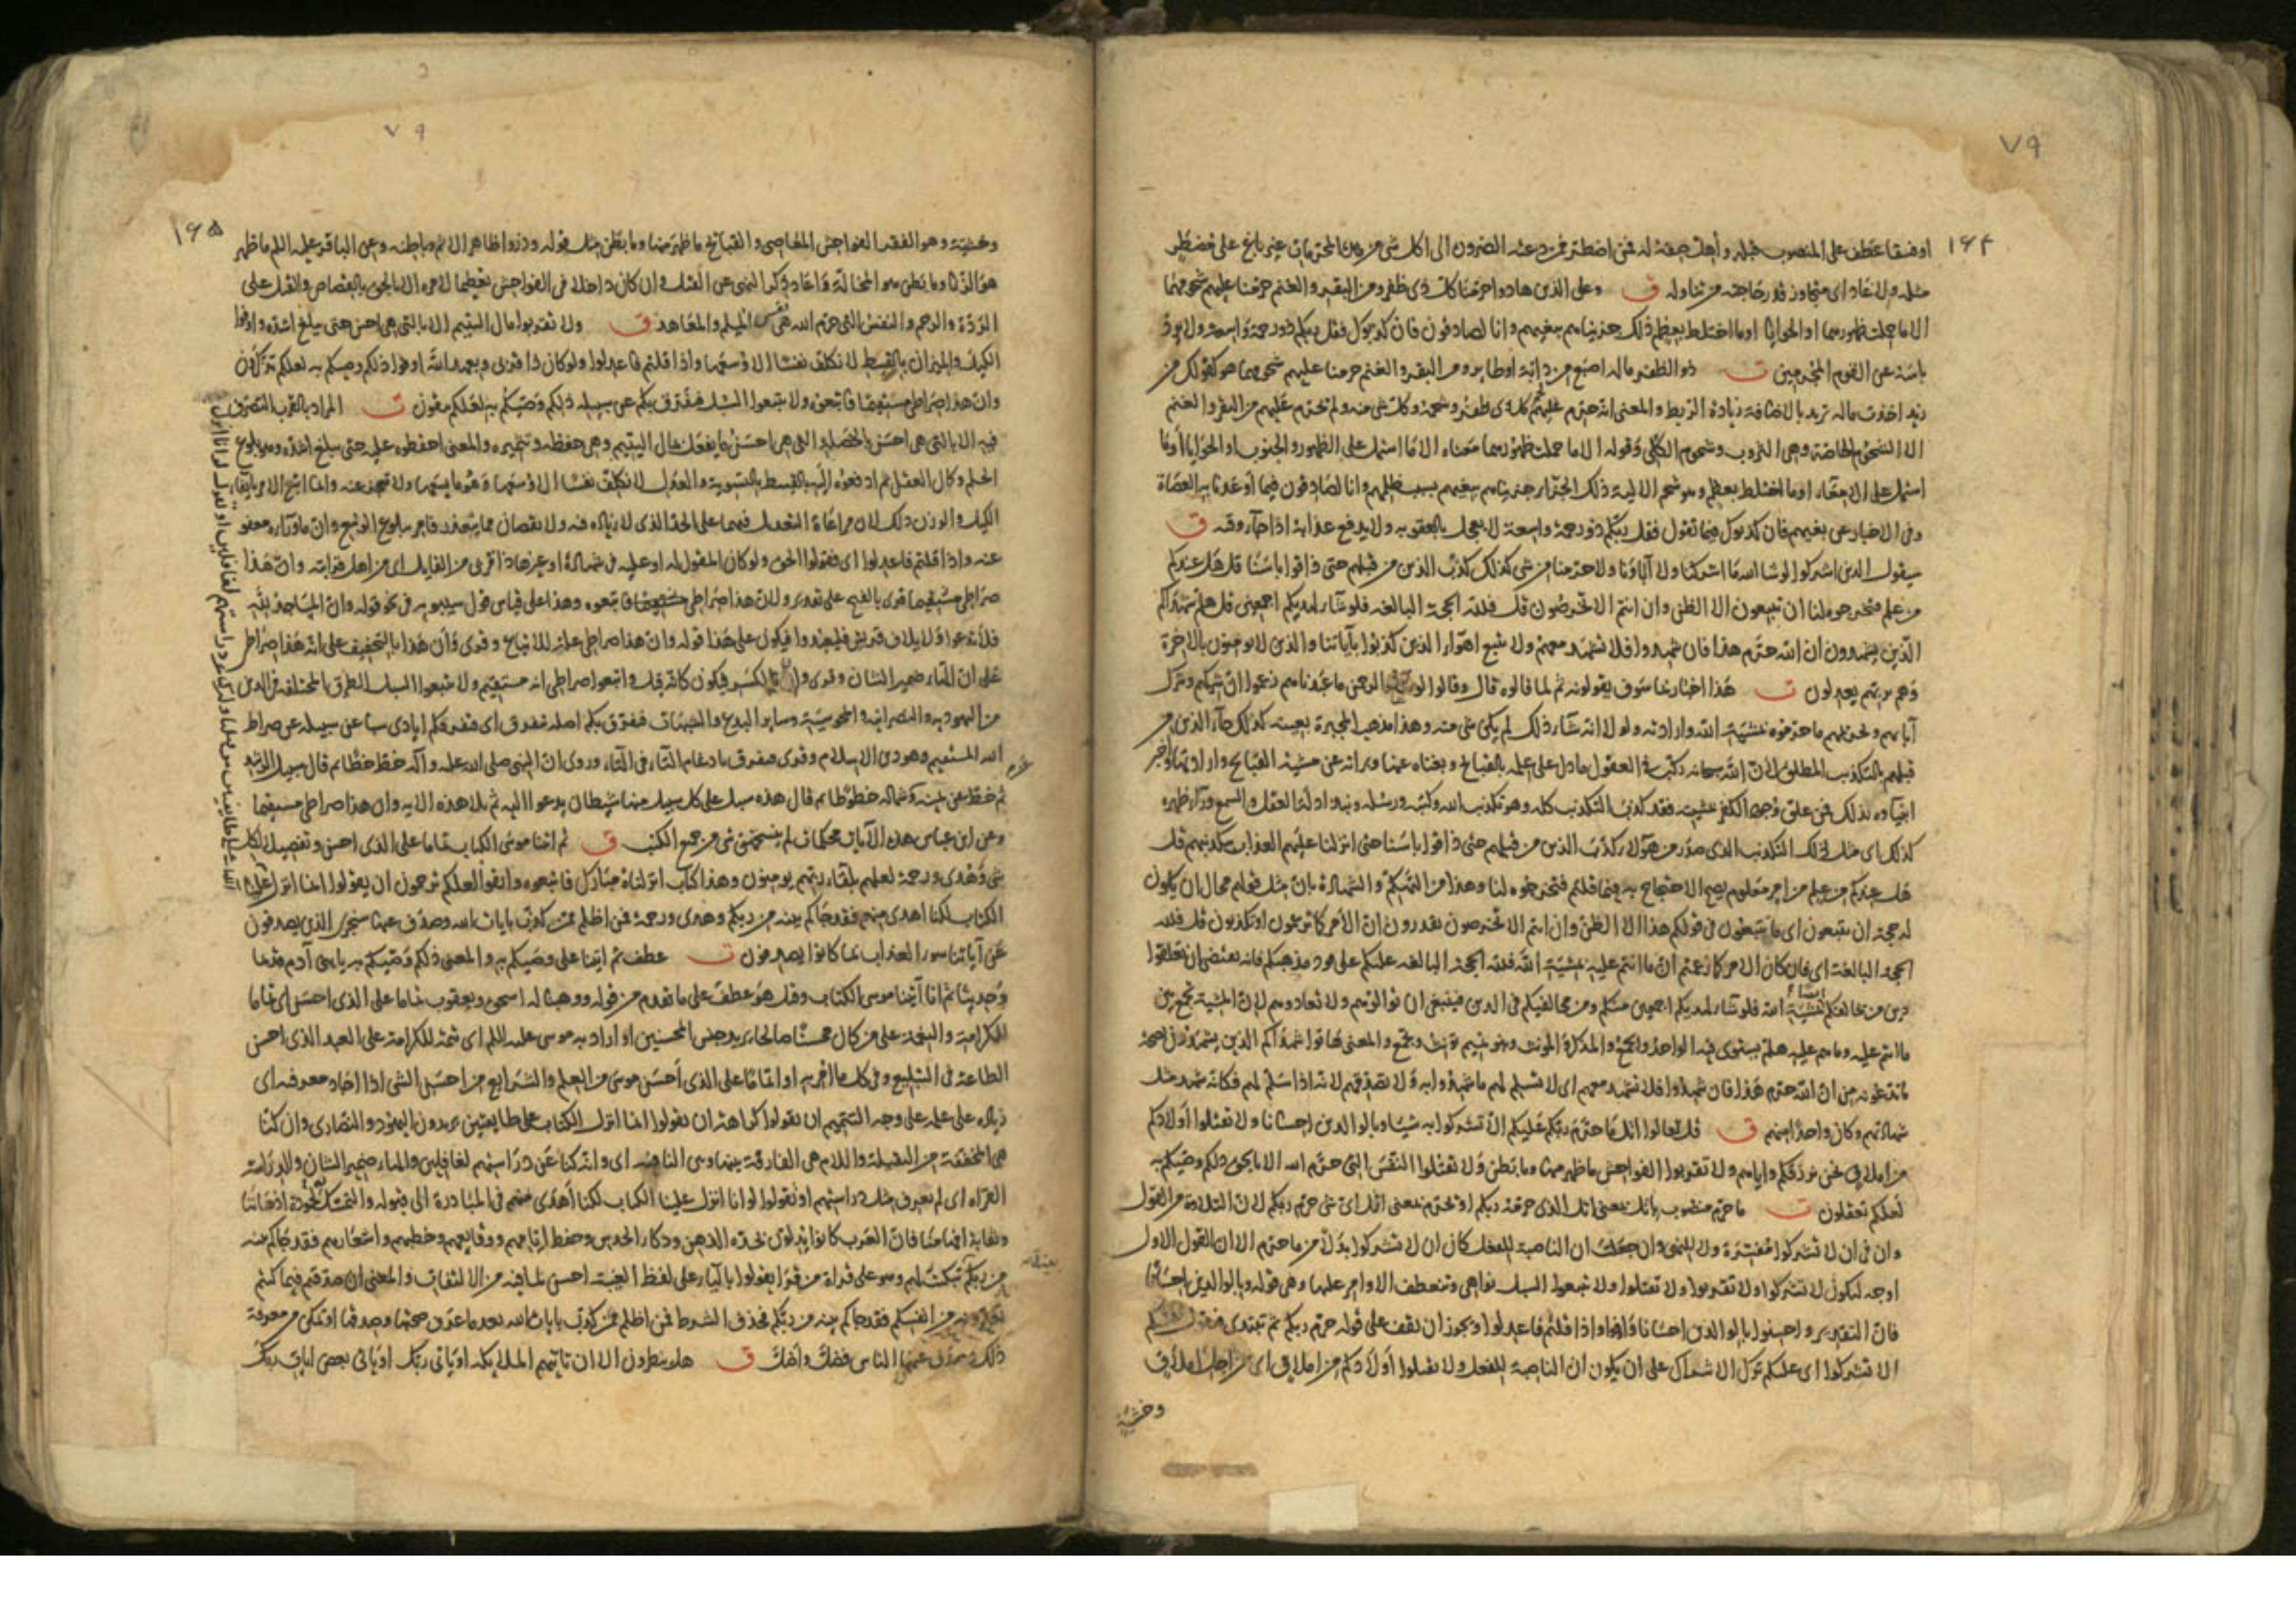 ٧٩
١٦٤
او فسقا عطف على المنصوب قبله وأهل صفة له فمن اضطر فمن دعته الضرورة الى اكل شي من هذه المحرمات غير باغ على مضطر
مثله ولا عاد اى متجاوز قدر حاجته من تناوله ق وعلى الذين هادوا حرمنا كل ذى ظفر ومن البقر والغنم حرمنا عليهم شحومهما
الا ما حملت ظهورهما او الحوايا او ما اختلط بعظم ذلك جزيناهم ببغيهم وانا لصادقون فان كذبوك فقل ربكم ذو رحمة واسعة ولا يرد
باسه عن القوم المجرمين ت ذو الظفر ماله اصبع من دابة او طاير ومن البقر والغنم حرمنا عليهم شحومهما هو كقولك من
زيد اخذت ماله تريد بالاضافة زيادة الربط والمعنى انه حرم عليهم كل ذى ظفر وشحمه وكل شي منه ولم تحرم عليهم من البقر والغنم
الا الشحوم الخاصة وهى الثروب وشحوم الكلى وقوله الا ما حملت ظهورهما معناه الا ما اشتمل على الظهور والجنوب او الحوايا او ما
اشتمل على الامعاء او ما اختلط بعظم وهو شحم الالية ذلك الجزاء جزيناهم ببغيهم بسبب ظلمهم وانا لصادقون فيما أوعدنا به العصاة
وفى الاخبار عن بغيهم فان كذبوك فيما تقول فقل ربكم ذو رحمة واسعة لا يعجل بالعقوبه ولا يدفع عذابه اذا جاء وقته ق
سيقول الذين اشركوا لو شا الله ما اشركنا ولا آباؤنا ولا حرمنا من شي كذلك كذب الذين من قبلهم حتى ذاقوا باسنا قل هل عندكم
من علم فتخرجوه لنا ان تتبعون الا الظن وان انتم الا تخرصون قل فلله الحجة البالغه فلو شاء لهديكم اجمعين قل هلم شهداكم
الذين يشهدون ان الله حرم هذا فان شهدوا فلا تشهد معهم ولا تتبع اهواء الذين كذبوا بآياتنا والذين لا يومنون بالاخرة
وهم بربهم يعدلون ت هذا اخبار بما سوف يقولونه ثم لما قالوه قال وقالوا لو شاء الرحمن ما عبدناهم زعموا ان شركهم وشرك
آبايهم وتحريمهم ما حرموه بمشية الله وارادته ولولا انه شاء ذلك لم يكن شي منه وهذا مذهب المجبرة بعينه كذلك جاء الذين من
قبلهم بالتكذيب المطلق لان الله سبحانه ركب فى العقول ما دل على علمه بالقبايح وبغناه عنها وبراته عن مشية القبايح وارادتها واخبر
انبياءه بذلك فمن علق وجود الكفر بمشيته فقد كذب التكذيب كله وهو تكذيب الله وكتبه ورسله ونبذ ادلة العقل والسمع وراء ظهره
كذلك اى مثل ذلك التكذيب الذى صدر من هؤلاء كذب الذين من قبلهم حتى ذاقوا باسنا حتى انزلنا عليهم العذاب بتكذيبهم قل
هل عندكم من علم من امر معلوم يصح الاحتجاج به فيما قلتم فتخرجوه لنا وهذا من التهكم والشهادة بان مثل قولهم محال ان يكون
له حجة ان تتبعون اى ما تتبعون فى قولكم هذا الا الظن وان انتم الا تخرصون تقدرون ان الأمر كما تزعمون او تكذبون قل فلله
الحجة البالغة اى فان كان الامر كما زعمتم ان ما انتم عليه بمشية الله فلله الحجة البالغه عليكم على قود مذهبكم فانه يقتضى ان تعلقوا
دين من خالفكم ايضا بمشية الله فلو شاء لهديكم اجمعين منكم ومن مخالفيكم فى الدين فينبغى ان توالوهم ولا تعادوهم لان المشية تجمع بين
ما انتم عليه وما هم عليه هلم يستوى فيه الواحد والجمع والمذكر والمونث وبنو تميم تونث وتجمع والمعنى هاتوا شهداكم الذين يشهدون لصحة
ما تدعونه من ان الله حرم هذا فان شهدوا فلا تشهد معهم اى لا تسلم لهم ما شهدوا به ولا تصدقهم لانه اذا سلم لهم فكانه شهد مثل
شهادتهم وكان واحدا منهم ق قل تعالوا اتل ما حرم ربكم عليكم الا تشركوا به شيئا وبالوالدين احسانا ولا تقتلوا اولادكم
من املاق نحن نرزقكم واياهم ولا تقربوا الفواحش ما ظهر منها وما بطن ولا تقتلوا النفس التى حرم الله الا بالحق ذلكم وصيكم به
لعلكم تعقلون ت ما حرم منصوب باتل بمعنى اتل الذى حرمه ربكم او بحرم بمعنى اتل اى شى حرم ربكم لان التلاوة من القول
وان فى ان لا تشركوا مفسرة ولا للنهى وان جعلت ان الناصبة للفعل كان ان لا تشركوا بدلا من ما حرم الا ان القول الاول
اوجه ليكون لا تشركوا ولا تقربوا ولا تقتلوا ولا تتبعوا السبل نواهى وتنعطف الاوامر عليها وهى قوله وبالوالدين احسانا
فان التقدير واحسنوا بالوالدين احسانا واوفوا واذا قلتم فاعدلوا ويجوز ان تقف على قوله حرم ربكم ثم تبتدى فتقول عليكم
الا تشركوا اى عليكم ترك الاشراك على ان يكون ان الناصبة للفعل ولا تقتلوا أولادكم من املاق اى من اجل املاق
وخشية
٧٩
١٦٥
وخشيته وهو الفقر الفواحش المعاصى والقبايح ما ظهر منها وما بطن مثل قوله وذروا ظاهر الاثم وباطنه وعن الباقر عليه السلم ما ظهر
هو الزنا وما بطن هو المخالة واعاد ذكر النهى عن القتل وان كان داخلا فى الفواحش تعظيما لامره الا بالحق بالقصاص والقتل على
الردة والرجم والنفس التى حرم الله هى نفس المسلم والمعاهد ق ولا تقربوا مال اليتيم الا بالتى هى احسن حتى يبلغ اشده واوفوا
الكيل والميزان بالقسط لا نكلف نفسا الا وسعها واذا قلتم فاعدلوا ولو كان ذا قربى وبعهد الله اوفوا ذلكم وصيكم به لعلكم تذكرون
وان هذا صراطى مستقيما فاتبعوه ولا تتبعوا السبل فتفرق بكم عن سبيله ذلكم وصيكم به لعلكم تتقون ت المراد بالقرب التصرف
فيه الا بالتى هى احسن بالخصلة التى هى احسن ما يفعل بمال اليتيم وهى حفظه وتثميره والمعنى احفظوه عليه حتى يبلغ اشده وهو بلوغ
الحلم وكمال العقل ثم ادفعوه اليه بالقسط بالتسوية والعدل لا نكلف نفسا الا وسعها وهو ما يسعها ولا تعجز عنه وانما اتبع الامر بايفاء
الكيل والوزن ذلك لان مراعاة التعديل فيهما على الحد الذى لا زيادة فيه ولا نقصان مما يتعذر فامر ببلوغ الوسع وان ما وراءه معفو
عنه واذا قلتم فاعدلوا اى فقولوا الحق ولو كان المقول له او عليه فى شهادة او غيرها ذا قربى من القايل اى من اهل قرابته وان هذا
صراطى مستقيما قرى بالفتح على تقدير ولان هذا صراطى مستقيما فاتبعوه وهذا على قياس قول سيبويه فى نحو قوله وان المساجد لله
فلا تدعوا ولايلاف قريش فليعبدوا فيكون على هذا قوله وان هذا صراطى علة للاتباع وقرى وأن هذا بالتخفيف على انه هذا صراطى
على ان الهاء ضمير الشان وقرى وان بالكسر فيكون كانه قيل واتبعوا صراطى انه مستقيم ولا تتبعوا السبل الطرق المختلفه فى الدين
من اليهوديه والنصرانيه والمجوسية وساير البدع والشبهات فتفرق بكم اصله تتفرق اى فتفرقكم ايادى سبا عن سبيله عن صراط
الله المستقيم وهو دين الاسلام وقرى فتفرق بادغام التاء فى التاء وروى ان النبى صلى الله عليه وآله خط خطا ثم قال سبيل الرشد
ثم خط عن يمينه وشماله خطوطا ثم قال هذه سبل على كل سبيل منها شيطان يدعوا اليه ثم تلا هذه الايه وان هذا صراطى مستقيما
وعن ابن عباس هذه الآيات محكمات لم ينسخهن شى من جميع الكتب ق ثم اتينا موسى الكتاب تماما على الذى احسن وتفصيلا لكل
شى وهدى ورحمة لعلهم بلقاء ربهم يومنون وهذا كتاب انزلناه مبارك فاتبعوه واتقوا لعلكم ترحمون ان يقولوا انما انزل علينا
الكتاب لكنا اهدى منهم فقد جاكم بينه من ربكم وهدى ورحمة فمن اظلم ممن كذب بايات الله وصدف عنها سنجزى الذين يصدفون
عن آياتنا سوء العذاب بما كانوا يصدفون ت عطف ثم اتينا على وصيكم به والمعنى ذلكم وصيكم به يا بنى آدم قديما
وحديثا ثم انا آتينا موسى الكتاب وقيل هو عطف على ما تقدم من قوله ووهبنا له اسحق ويعقوب تماما على الذى احسن اى تماما
للكرامة والنعمة على من كان محسنا صالحا يريد جنس المحسنين او اراد به موسى عليه السلم اى تتمة للكرامة على العبد الذى احسن
الطاعة فى التبليغ وفى كل ما امر به او تماما على الذى أحسن موسى من العلم والشرايع من احسن الشى اذا اجاد معرفته اى
زيادة على علمه على وجه التتميم ان تقولوا كراهة ان تقولوا انما انزل الكتاب على طايفتين يريدون اليهود والنصارى وان كنا
هى المخففة من الثقيلة واللام هى الفارقة بينها وبين النافيه اى وانه كنا عن دراستهم لغافلين والهاء ضمير الشان والدراسة
القراءة اى لم نعرف مثل دراستهم او تقولوا لو انا انزل علينا الكتاب لكنا أهدى منهم فى المبادرة الى قبوله والتمسك به لجودة أذهاننا
وثقابة افهامنا فان العرب كانوا يدلون بحدة الذهن وذكاء الحدس وحفظ ايامهم ووقايعهم وخطبهم واشعارهم فقد جاكم بينه
من ربكم تبكيت لهم وهو على قراة من قرا يقولوا بالياء على لفظ الغيبة احسن لما فيه من الالتفات والمعنى ان صدقتم فيما كنتم
تعدونه من انفسكم فقد جاكم بينه من ربكم فحذف الشرط فمن اظلم ممن كذب بايات الله بعد ما عرف صحتها وصدقها او تمكن من معرفة
ذلك وصدف عنها الناس فضل وأضل ق هل ينظرون الا ان تاتيهم الملايكه او ياتى ربك او ياتى بعض ايات ربك